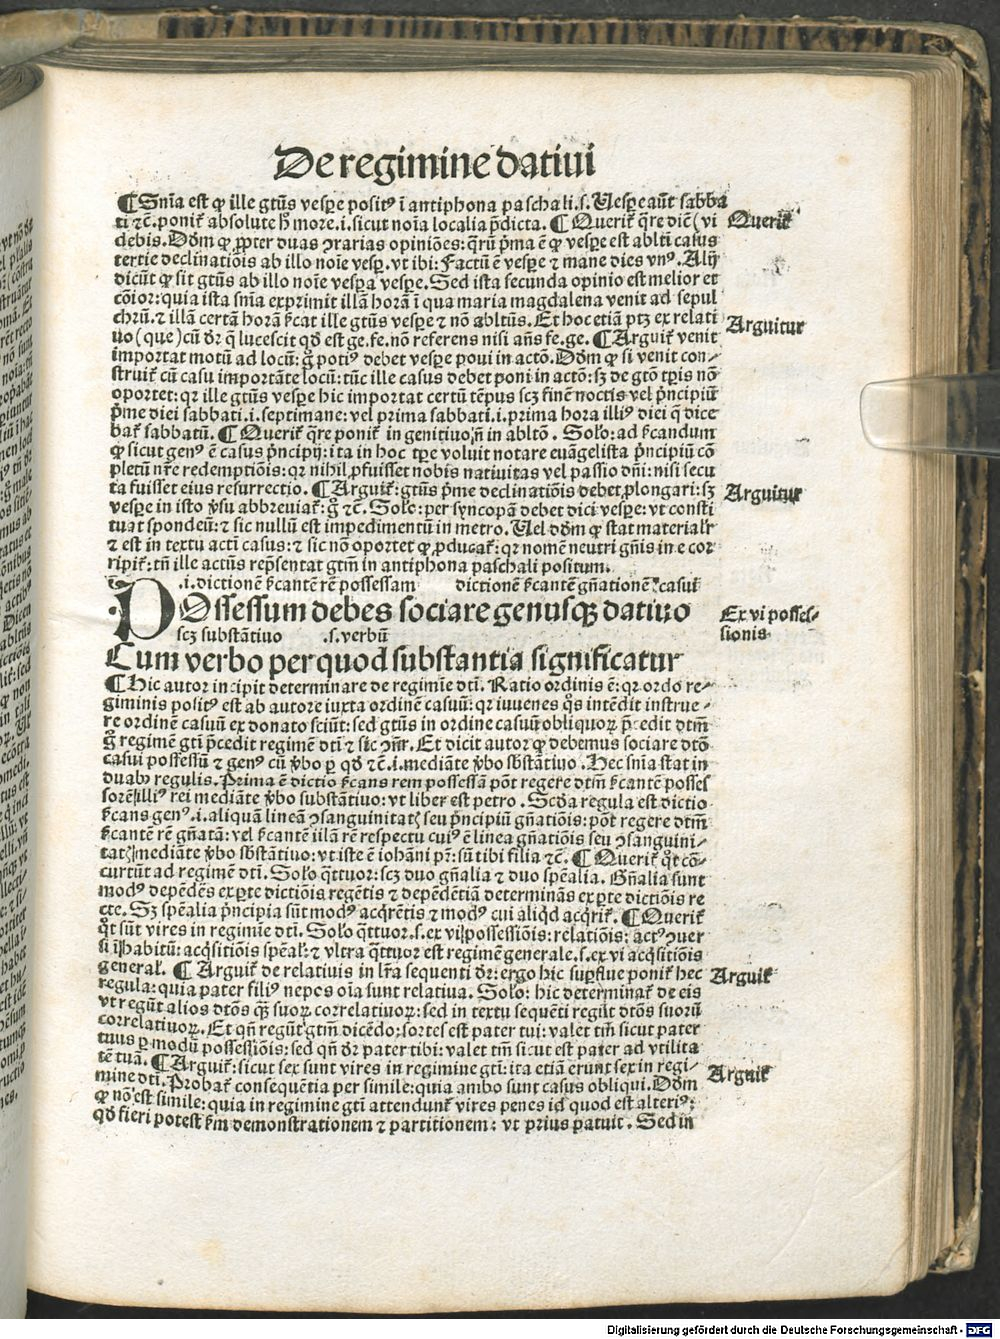 De regimine datiui
¶ Snīa est ꝙ ille gtūs vespe positꝰ ī antiphona paschali.s. Uespe aūt sabba
ti ⁊c̄. poniť absolute h̄ more.i. sicut noīa localia p̄dicta. ¶ Queriť q̄re diē (vi
debis. Dōm ꝙ ꝓpter duas ꝯrarias opiniōes: q̄rū p̄ma ē ꝙ vespe est ablti casus
tertie declinatiōis ab illo noīe vesp. vt ibi: Factū ē vespe ⁊ mane dies vnꝰ. Alij
dicūt ꝙ sit gtūs ab illo noīe vespa vespe. Sed ista secunda opinio est melior et
cōior: quia ista snīa exprimit illā horā ī qua maria magdalena venit ad sepul
chrū. ⁊ illā certā horā ẜcat ille gtūs vespe ⁊ nō abltūs. Et hoc etiā ptꝫ ex relati
uo (que) cū dr̄ q̄ lucescit qd̄ est ge.fe. nō referens nisi an̄s fe.ge. ¶ Arguiť venit
importat motū ad locū: g̊ potiꝰ debet vespe poni in actō. Dōm ꝙ si venit con-
struiť cū casu importāte locū: tūc ille casus debet poni in actō: sꝫ de gtō tp̄is nō
oportet: qꝛ ille gtūs vespe hic importat certū tēpus scꝫ finē noctis vel p̄ncipiū
p̄me diei sabbati.i. septimane: vel prima sabbati.i. prima hora illiꝰ diei q̄ dice
bať sabbatū. ¶ Queriť q̄re poniť in genitiuo ⁊ n̄ in abltō. Solo: ad ẜcandum
ꝙ sicut genꝰ ē casus p̄ncipij: ita in hoc tp̄e voluit notare euāgelista p̄ncipiū cō
pletū nr̄e redemptiōis: qꝛ nihil ꝓfuisset nobis natiuitas vel passio dn̄i: nisi secu
ta fuisset eius resurrectio. ¶ Arguiť: gtūs p̄me declinatiōis debet ꝓlongari: sꝫ
vespe in isto v̄su abbreuiať: g̊ ⁊c̄. Solo: per syncopā debet dici vespe: vt consti
tuat spondeū: ⁊ sic nullū est impedimentū in metro. Uel dōm ꝙ stat materialr̄
⁊ est in textu acti casus: ⁊ sic nō oportet ꝙ ꝓducať: qꝛ nomē neutri gn̄is in e cor
ripiť: tn̄ ille actūs rep̄sentat gtm̄ in antiphona paschali positum.
.i. dictionē ẜcantē rē possessam dictionē ẜcantē gn̄ationē casui
POssessum debes sociare genusqꝫ datiuo
scꝫ substātiuo .s. verbū
Cum verbo per quod substantia significatur
¶ Hic autor incipit determinare de regimīe dti. Ratio ordinis ē: qꝛ ordo re-
giminis positꝰ est ab autore iuxta ordinē casuū: qꝛ iuuenes q̊s intēdit instrue-
re ordinē casuū ex donato sciūt: sed gtūs in ordine casuū obliquoꝝ p̄cedit dtm̄
g̊ regimē gti p̄cedit regimē dti ⁊ sic ꝯn̄r. Et dicit autor ꝙ debemus sociare dtō
casui possessū ⁊ genꝰ cū v̄bo ꝑ qd̄ ⁊c̄.i. mediāte v̄bo sb̄stātiuo. Hec snīa stat in
duabꝰ regulis. Prima ē dictio ẜcans rem possessā pōt regere dtm̄ ẜcantē posses
sorē illiꝰ rei mediāte v̄bo substātiuo: vt liber est petro. Scd̄a regula est dictio
ẜcans genꝰ.i. aliquā lineā ꝯsanguinitatꝭ seu p̄ncipiū gn̄atiōis: pōt regere dtm̄
ẜcantē rē gn̄atā: vel ẜcantē illā rē respectu cuiꝰ ē linea gn̄atiōis seu ꝯsanguini-
tatꝭ mediāte v̄bo sb̄stātiuo: vt iste ē iohāni pr̄: sū tibi filia ⁊c̄. ¶ Queriť q̊t cō-
currūt ad regimē dti. Solo q̊ttuor: scꝫ duo gn̄alia ⁊ duo spēalia. Gn̄alia sunt
modꝰ depēdēs ex ꝑte dictiōis regētis ⁊ depēdētiā determinās ex ꝑte dictiōis re
cte. Sꝫ spēalia p̄ncipia sūt modꝰ acq̄rētis ⁊ modꝰ cui aliqd̄ acq̄riť. ¶ Queriť
q̊t sūt vires in regimīe dti. Solo q̊ttuor.s. ex vi possessiōis: relatiōis: actꝰ ꝯuer
si ī habitū: acq̄sitiōis spēalꝭ: ⁊ vltra q̊ttuor est regimē generale.s. ex vi acq̄sitiōis
generalꝭ. ¶ Arguiť de relatiuis in lr̄a sequenti dr̄: ergo hic suꝑflue poniť hec
regula: quia pater filiꝰ nepos oīa sunt relatiua. Solo: hic determinať de eis
vt regūt alios dtōs q̄ꝫ suoꝝ correlatiuoꝝ: sed in textu sequēti regūt dtōs suorū
correlatiuoꝝ. Et qn̄ regūt gtm̄ dicēdo: sortes est pater tui: valet tm̄ sicut pater
tuus ꝑ modū possessiōis: sed qn̄ dr̄ pater tibi: valet tm̄ sicut est pater ad vtilita
tē tuā. ¶ Arguiť: sicut sex sunt vires in regimine gti: ita etiā erunt sex in regi-
mine dti. Probať consequētia per simile: quia ambo sunt casus obliqui. Dōm
ꝙ nō est simile: quia in regimine gti attendunť vires penes id quod est alteriꝰ:
qd̄ fieri potest ẜm demonstrationem ⁊ partitionem: vt prius patuit. Sed in
Queriť
Arguitur
Arguitur
Ex vi posses-
sionis.
Arguiť
Arguiť
Digitalisierung gefördert durch die Deutsche Forschungsgemeinschaft - DFG